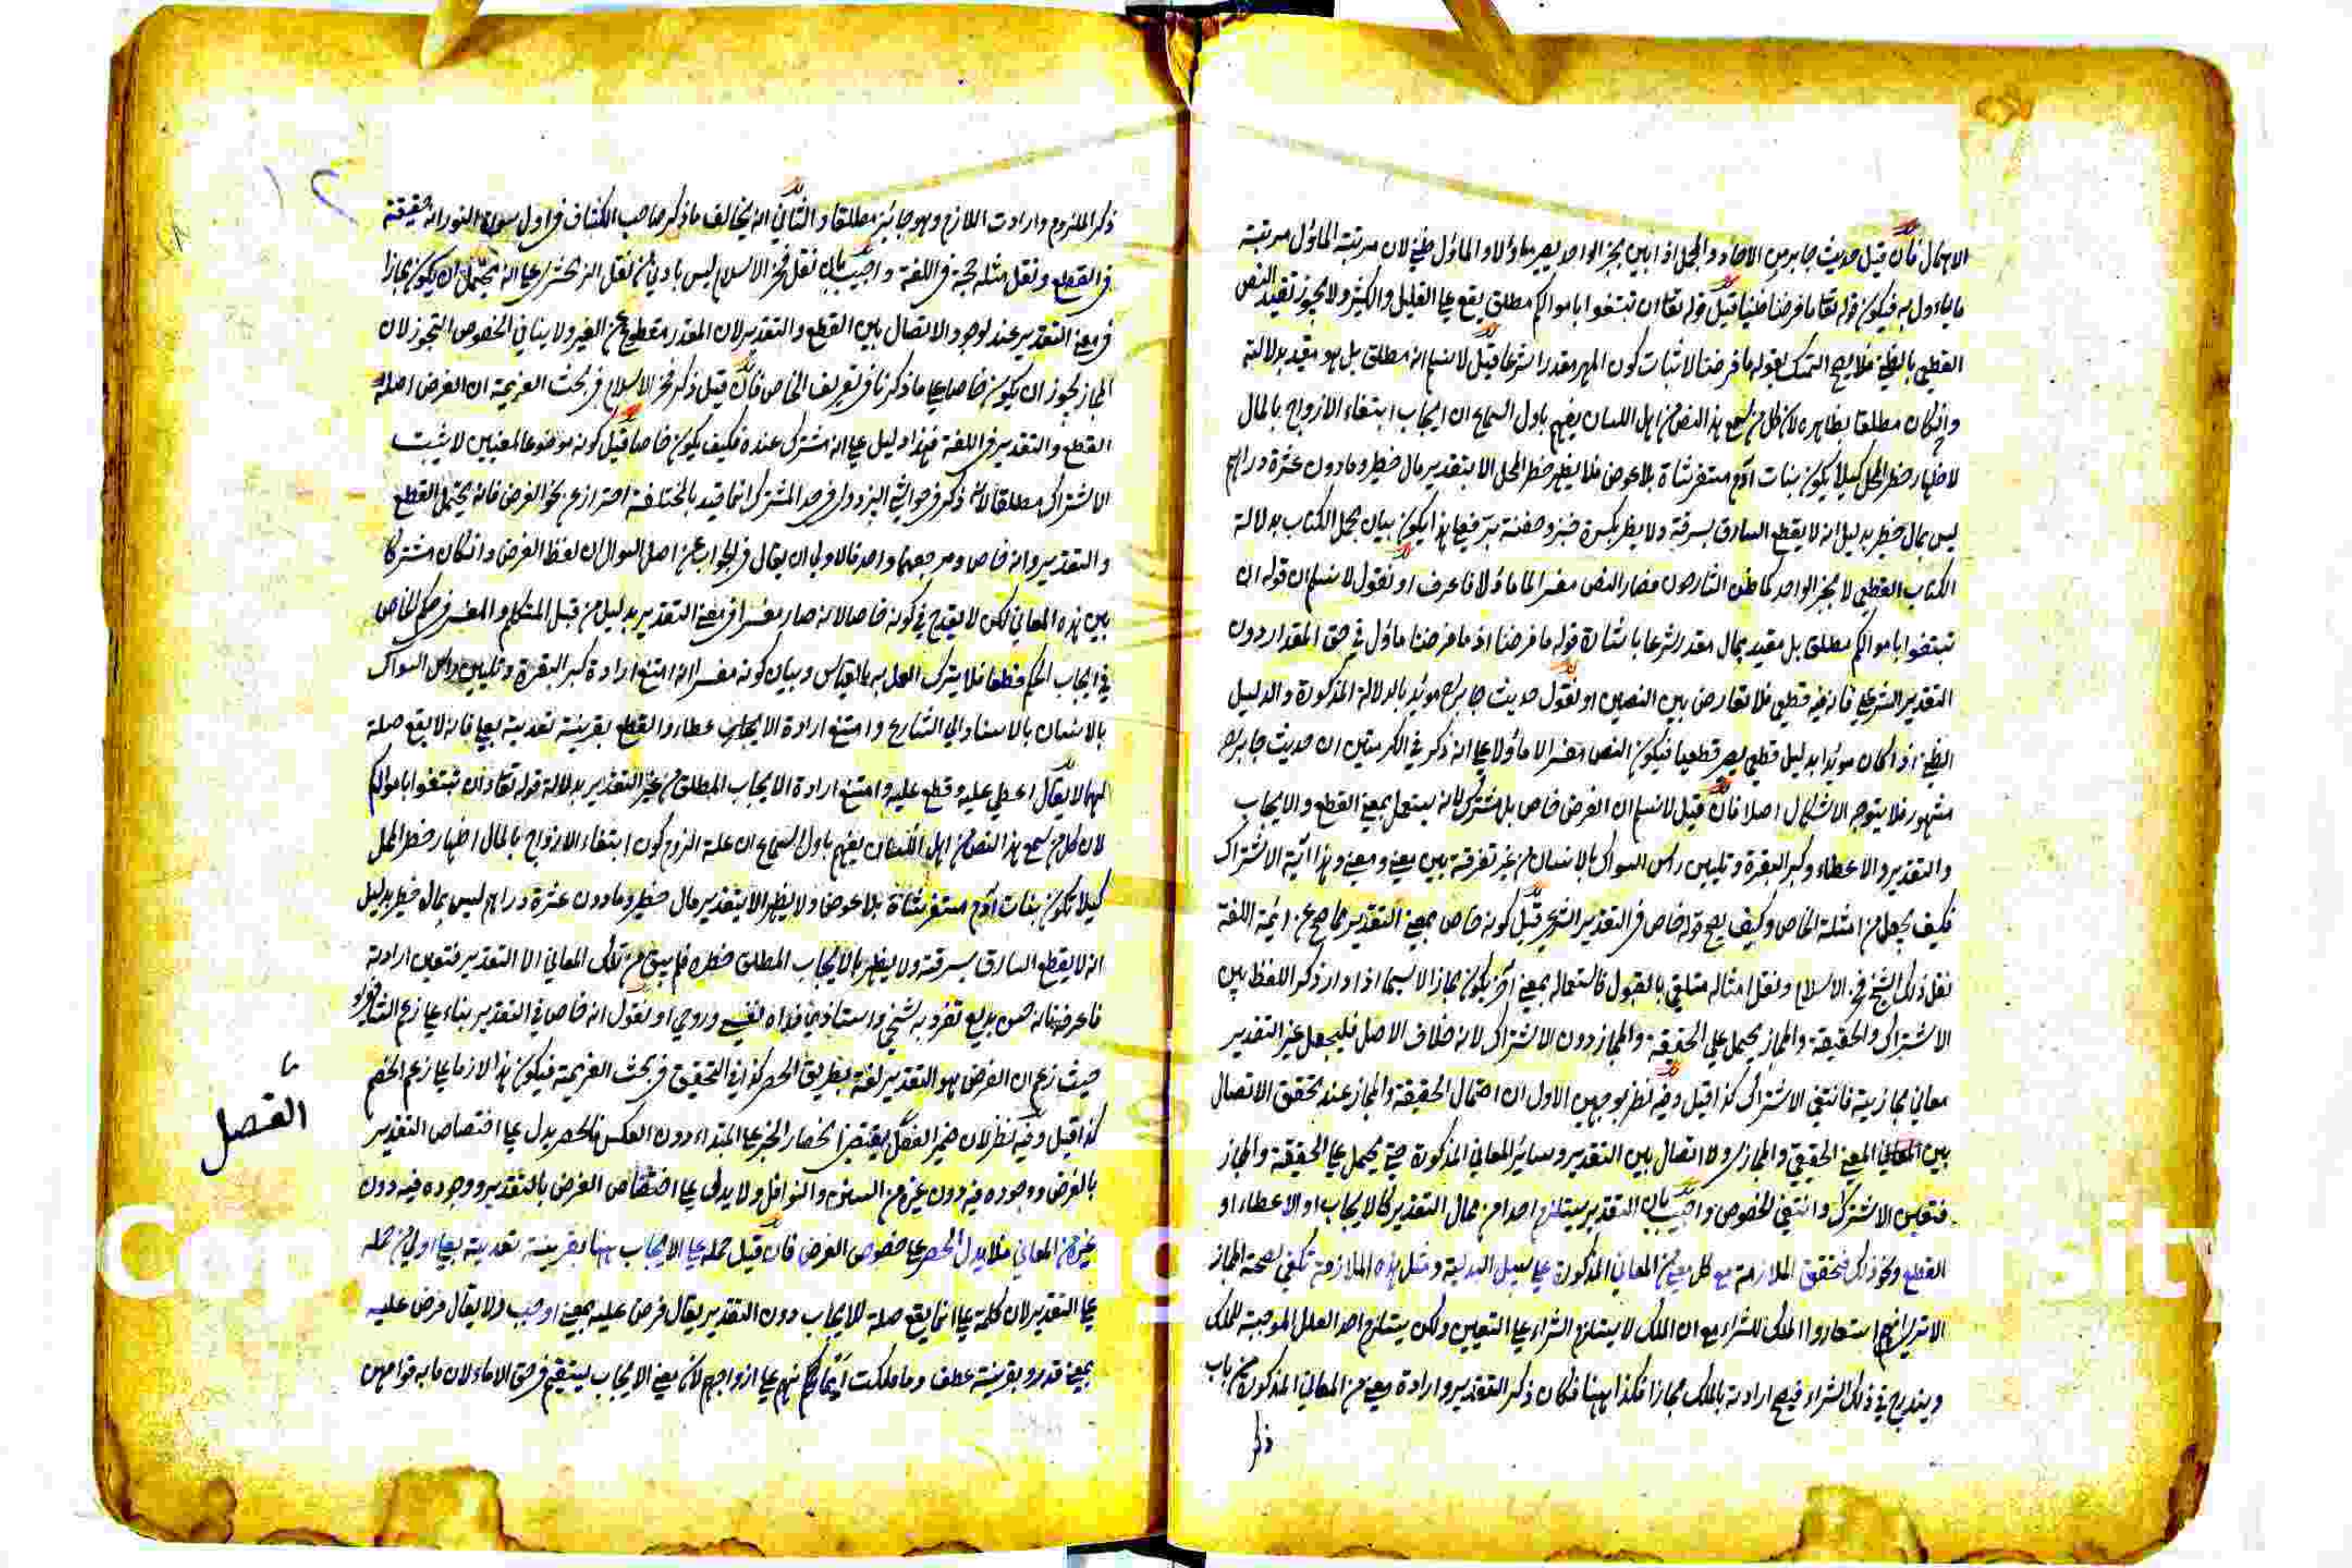 الاجمال فان قيل حديث جابر من الاحاد والمجمل اذا بين بخبر الواحد يصير ماؤلا والماؤل ظني لان مرتبته الماؤل مرتبته
ما ياءول به فيكون قوله تعا ما فرضنا ظنيا قيل قوله تعا ان تبتغوا باموالكم مطلق يقع على القليل والكثير ولا يجوز تقييد النص
القطعي بالظني فلا يصح التمسك بقوله ما فرضنا لاثبات كون المهر مقدرا شرعا قيل لا نسلم انه مطلق بل هو مقيد بدلالته
وانكان مطلقا بظاهره لان كل من يسمع هذا النص من اهل اللسان يفهم باول السماع ان ايجاب ابتغاء الازواج بالمال
لاظهار خطر المحل كيلا يكون بنات آدم مستفرشاة بلا عوض فلا يظهر خطر المحل الا بتقدير مال خطير وما دون عشرة دراهم
ليس بمال خطير بدليل انه لا يقطع السارق بسرقة ولا يظهر بكسرة خبز وحفنة بر فيعلى هذا يكون بيان محمل الكتاب بدلالة
الكتاب القطعي لا بخبر الواحد كما ظن الشارحون فصار النص مفسرا لا ماؤلا فاعرف او نقول لا نسلم ان قوله ان
تبتغوا باموالكم مطلق بل مقيد بمال مقدر شرعا باشارة قوله ما فرضنا اذ ما فرضنا ماؤل في حق المقدار دون
التقدير الشرعي فانه فيه قطعي فلا تعارض بين النصين او نقول حديث جابر رض مويد بالدلالة المذكورة والدليل
الظني اذا كان مويدا بدليل قطعي يصير قطعيا فيكون النص مفسرا لا ماؤلا على انه ذكر في الكرمتين ان حديث جابر رض
مشهور فلا يتوجه الاشكال اصلا فان قيل لا نسلم ان الفرض خاص بل مشترك لانه يستعمل بمعنى القطع والايجاب
والتقدير والاعطاء وكبر البقرة وتليين راس السواك بالاسنان من غير تفرقة بين معنى ومعنى وهذا آية الاشتراك
فكيف يجعل من امثلة الخاص وكيف يصح قوله خاص في التقدير الشرعي قيل كونه خاص بمعنى التقدير مما صح عن ائمة اللغة
نقل ذلك الشيخ فخر الاسلام ونقل امثاله متلقى بالقبول فاستعماله بمعنى آخر يكون مجازا لا سيما اذا دار ذكر اللفظ بين
الاشتراك والحقيقة والمجاز يحمل على الحقيقة والمجاز دون الاشتراك لانه خلاف الاصل فليجعل غير التقدير
معاني مجازية فانتفى الاشتراك كذا قيل وفيه نظر بوجهين الاول ان احتمال الحقيقة والمجاز عند تحقق الاتصال
بين المعنى الحقيقي والمجازي ولا اتصال بين التقدير وسائر المعاني المذكورة حتى يحمل على الحقيقة والمجاز
فتعين الاشتراك وانتفى الخصوص واجيب بان التقدير يستلزم احدا من محال التقدير كالايجاب او الاعطاء او
القطع ونحو ذلك فتحقق الملازمة مع كل معنى من المعاني المذكورة على سبيل البدلية ومثل هذه الملازمة تكفي لصحة المجاز
الا ترى انهم استعاروا الملك للشراء مع ان الملك لا يستلزم الشراء على التعيين ولكن يستلزم احد العلل الموجبة للملك
ويندرج في ذلك الشراء فيصح ارادته بالملك مجازا فكذا ههنا فكان ذكر التقدير وارادة معنى من المعاني المذكورة من باب
ذكر
ذكر الملزوم وارادت اللازم وهو جائز مطلقا والثاني انه يخالف ما ذكر صاحب الكشاف في اول سورة النور انه حقيقة
في القطع ونقل مثله حجة في اللغة واجيب بان نقل فخر الاسلام ليس بادنى من نقل الزمخشري على انه يحتمل ان يكون مجازا
في معنى التقدير عنده لوجود الاتصال بين القطع والتقدير لان المقدر مقطوع عن الغير ولا ينافي الخصوص التجوز لان
المجاز يجوز ان يكون خاصا على ما ذكرنا في تعريف الخاص فان قيل ذكر فخر الاسلام في بحث العزيمة ان الفرض اصله
القطع والتقدير في اللغة فهذا دليل على انه مشترك عنده فكيف يكون خاصا قيل كونه موضوعا لمعنيين لا يثبت
الاشتراك مطلقا لانه ذكر في حواشي البزدوي في حد المشترك انما قيد بالمختلفة احترازا عن نحو الفرض فانه يحتمل القطع
والتقدير وانه خاص ومرجعهما واحد فالاولى ان يقال في الجواب عن اصل السوال ان لفظ الفرض وانكان مشتركا
بين هذه المعاني لكن لا يقدح في كونه خاصا لانه صار مفسرا في معنى التقدير بدليل من قبل المتكلم والمفسر في حكم الخاص
في ايجاب الحكم قطعا فلا يترك العمل به بالقياس وبيان كونه مفسرا انه امتنع ارادة كبر البقرة وتليين راس السواك
بالاسنان بالاسناد الى الشارع وامتنع ارادة الايجاب عطاء والقطع بقرينة تعديته بعلى فانه لا يقع صلة
لهما لا يقال اعطي عليه وقطع عليه وامتنع ارادة الايجاب المطلق من غير التقدير بدلالة قوله تعا ان تبتغوا باموالكم
لان كل من سمع هذا النص من اهل اللسان يفهم باول السماع ان علة الزوم كون ابتغاء الازواج بالمال اظهار خطر المحل
كيلا تكون بنات آدم مستفرشاة بلا عوض ولا يظهر الا بتقدير مال خطير وما دون عشرة دراهم ليس بمال خطير بدليل
انه لا يقطع السارق بسرقته ولا يظهر بالايجاب المطلق خطره فلم يبق من تلك المعاني الا التقدير فتعين ارادته
فاعرف فانه حسن بديع تفرد به شيخي واستاذي فداه نفسي وروحي او نقول انه خاص في التقدير بناء على زعم الشافعي
حيث زعم ان الفرض هو التقدير لغة بطريق الحصر كذا في التحقيق في بحث العزيمة فيكون هذا لازما على زعم الخصم
كذا قيل وفيه نظر لان ضمير الفصل يقتضي انحصار الخبر على المبتداء دون العكس فالحصر يدل على اختصاص التقدير
بالفرض ووجوده فيه دون غيره من السنن والنوافل ولا يدل على اختصاص الفرض بالتقدير ووجوده فيه دون
غيره من المعاني فلا يدل الحصر على خصوص الفرض فان قيل حمله على الايجاب ههنا بقرينة تعديته بعلى اولى من حمله
على التقدير لان كلمة على انما يقع صلة للايجاب دون التقدير يقال فرض عليه بمعنى اوجب ولا يقال فرض عليه
بمعنى قدر وبقرينة عطف وما ملكت ايمانكم على ازواجهم لان معنى الايجاب يستقيم في حق الاماء لان ما به قوامهن
الفصل